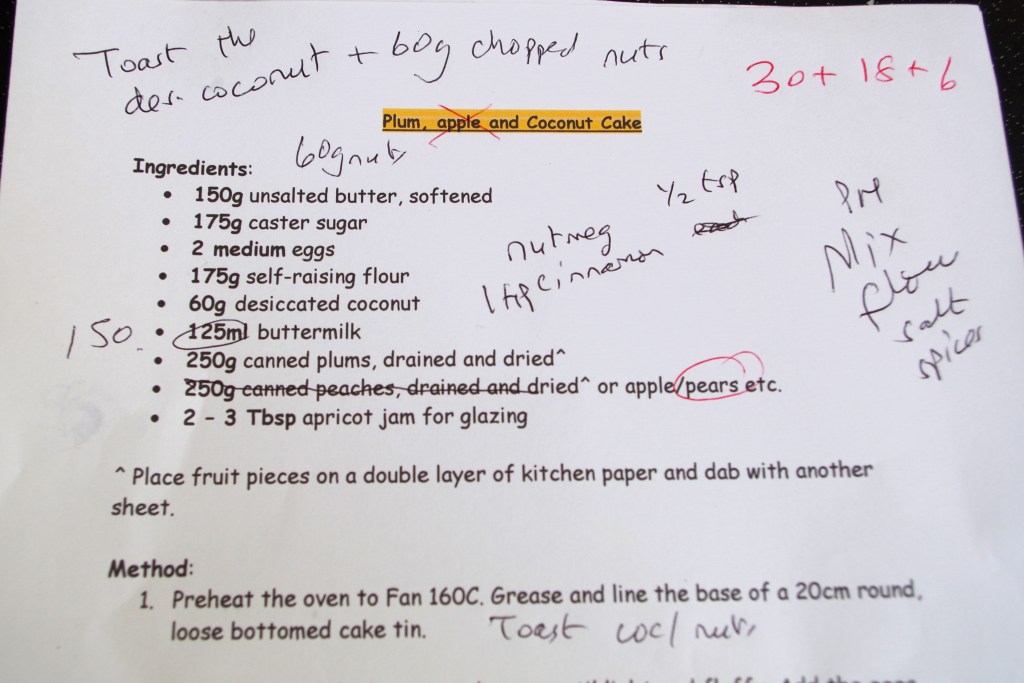 Toast the
des. coconut + 60g chopped nuts
30 + 18 + 6
Plum, apple and Coconut Cake
60g nuts
Ingredients:
• 150g unsalted butter, softened
½ tsp
• 175g caster sugar
nutmeg
• 2 medium eggs
1 tsp Cinnamon
Mix
flour
salt
spices
• 175g self-raising flour
• 60g desiccated coconut
150
• 125ml buttermilk
• 250g canned plums, drained and dried^
• 250g canned peaches, drained and dried^ or apple/pears etc.
• 2 - 3 Tbsp apricot jam for glazing
^ Place fruit pieces on a double layer of kitchen paper and dab with another
sheet.
Method:
1. Preheat the oven to Fan 160C. Grease and line the base of a 20cm round,
loose bottomed cake tin.
Toast coc/nuts